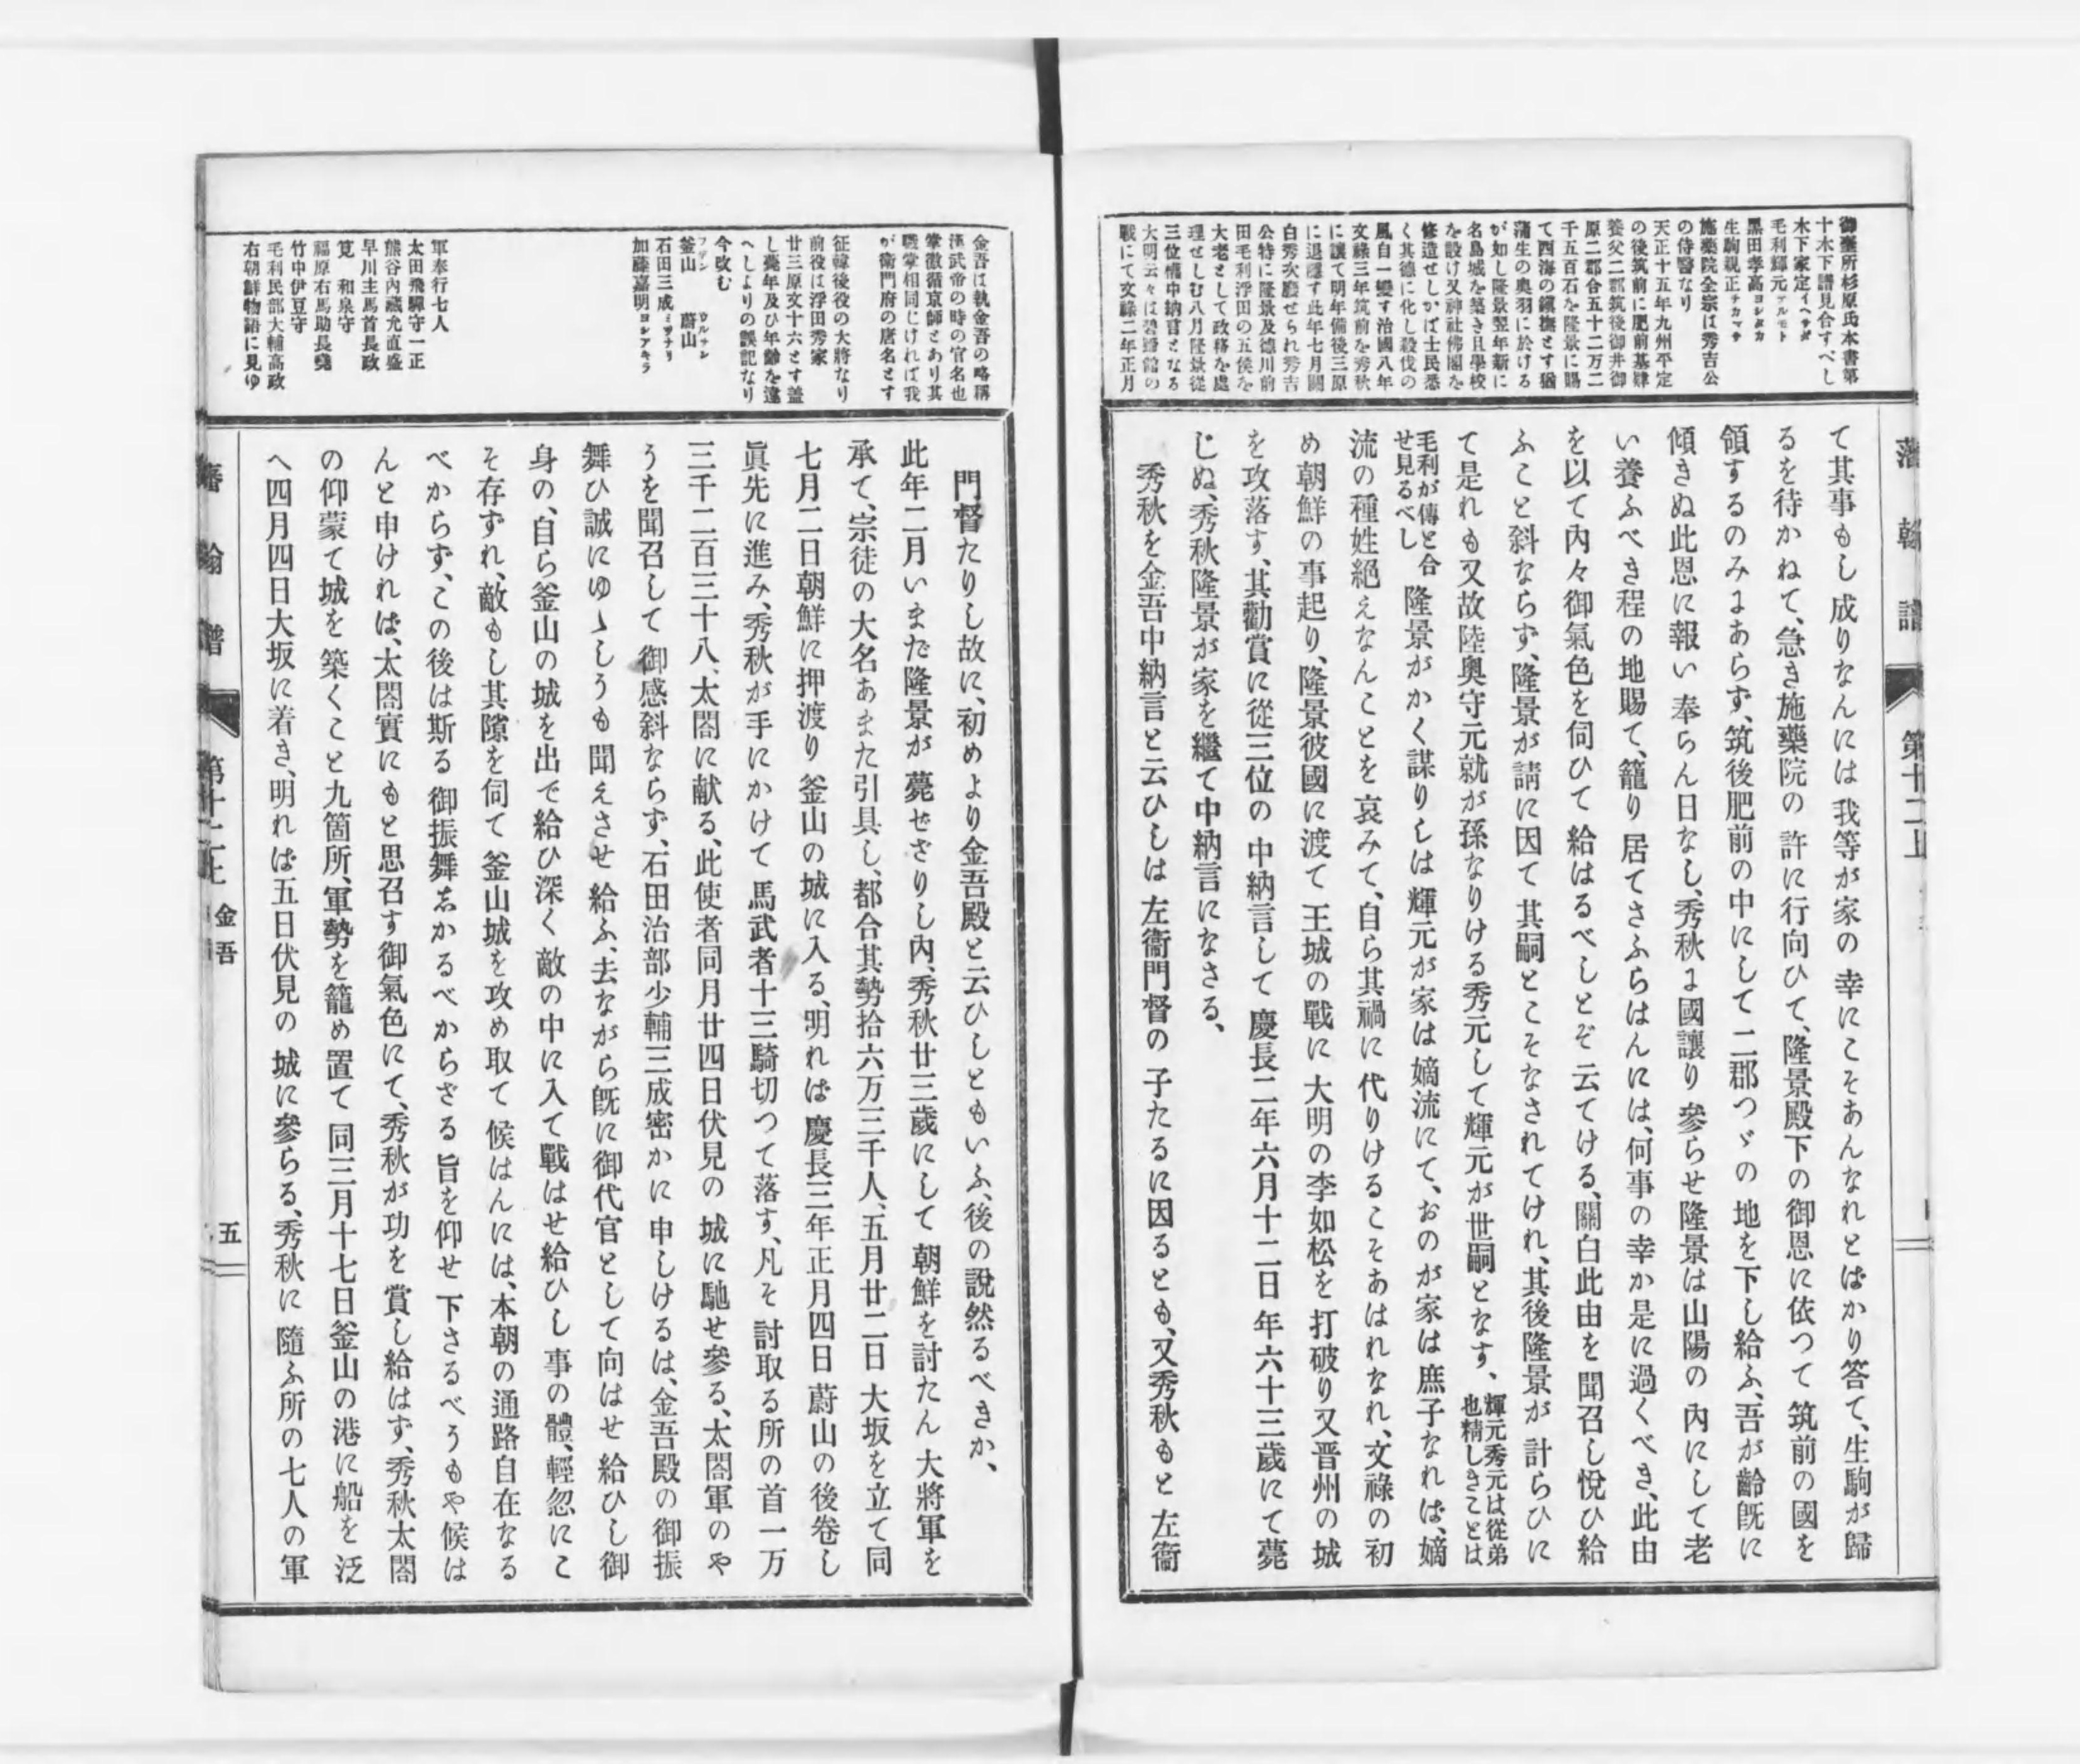 藩翰譜 第十二上
御臺所杉原氏本書第
十木下譜見合すべし
木下家定イヘサダ
毛利輝元テルモト
黑田孝高ヨシタカ
生駒親正チカマサ
施藥院全宗は秀吉公
の侍醫なり
天正十五年九州平定
の後筑前に肥前基肄
養父二郡筑後御井御
原二郡合五十二万二
千五百石を隆景に賜
て西海の鎭撫とす猶
蒲生の奥羽に於ける
が如し隆景翌年新に
名島城を築き且學校
を設け又神社佛閣を
修造せしかば士民悉
く其德に化し殺伐の
風自一變す治國八年
文祿三年筑前を秀秋
に讓て明年備後三原
に退隱す此年七月關
白秀次廢せられ秀吉
公特に隆景及德川前
田毛利浮田の五侯を
大老として政務を處
理せしむ八月隆景從
三位權中納言となる
大明云々は碧蹄館の
戰にて文祿二年正月
て其事もし成りなんには我等が家の幸にこそあんなれとばかり答て、生駒が歸
るを待かねて、急き施藥院の許に行向ひて、隆景殿下の御恩に依つて筑前の國を
領するのみよあらず、筑後肥前の中にして二郡つゞの地を下し給ふ、吾が齡既に
傾きぬ此恩に報い奉らん日なし、秀秋よ國讓り參らせ隆景は山陽の內にして老
い養ふべき程の地賜て、籠り居てさふらはんには、何事の幸か是に過くべき、此由
を以て內々御氣色を伺ひて給はるべしとぞ云てける、關白此由を聞召し悅ひ給
ふこと斜ならず、隆景が請に因て其嗣とこそなされてけれ、其後隆景が計らひに
て是れも又故陸奥守元就が孫なりける秀元して輝元が世嗣となす、輝元秀元は從弟也精しきことは
毛利が傳と合せ見るべし 隆景がかく謀りしは輝元が家は嫡流にて、おのが家は庶子なれば、嫡
流の種姓絕えなんことを哀みて、自ら其禍に代りけるこそあはれなれ、文祿の初
め朝鮮の事起り、隆景彼國に渡て王城の戰に大明の李如松を打破り又晋州の城
を攻落す、其勸賞に從三位の中納言して慶長二年六月十二日年六十三歲にて薨
じぬ、秀秋隆景が家を繼て中納言になさる、
秀秋を金吾中納言と云ひしは左衞門督の子たるに因るとも、又秀秋もと左衞
金吾は執金吾の略稱
漢武帝の時の官名也
掌徼循京師とあり其
職掌相同じければ我
が衞門府の唐名とす
征韓後役の大將なり
前役は浮田秀家
廿三原文十六とす盖
し薨年及ひ年齡を違
へしよりの誤記なり
今改む
釜山フザン 蔚山ウルサン
石田三成ミツナリ
加藤嘉明ヨシアキラ
軍奉行七人
太田飛驒守一正
熊谷內藏允直盛
早川主馬首長政
筧 和泉守
福原右馬助長堯
竹中伊豆守
毛利民部大輔高政
右朝鮮物語に見ゆ
門督たりし故に、初めより金吾殿と云ひしともいふ、後の說然るべきか、
此年二月いまだ隆景が薨ぜざりし內、秀秋廿三歲にして朝鮮を討たん大將軍を
承て、宗徒の大名あまた引具し、都合其勢拾六万三千人、五月廿二日大坂を立て同
七月二日朝鮮に押渡り釜山の城に入る、明れば慶長三年正月四日蔚山の後卷し
眞先に進み、秀秋が手にかけて馬武者十三騎切つて落す、凡そ討取る所の首一万
三千二百三十八、太閤に献る、此使者同月廿四日伏見の城に馳せ參る、太閤軍のや
うを聞召して御感斜ならず、石田治部少輔三成密かに申しけるは、金吾殿の御振
舞ひ誠にゆゝしうも聞えさせ給ふ、去ながら既に御代官として向はせ給ひし御
身の、自ら釜山の城を出で給ひ深く敵の中に入て戰はせ給ひし事の體、輕忽にこ
そ存ずれ、敵もし其隙を伺て釜山城を攻め取て候はんには、本朝の通路自在なる
べからず、この後は斯る御振舞志かるべからざる旨を仰せ下さるべうもや候は
んと申ければ、太閤實にもと思召す御氣色にて、秀秋が功を賞し給はず、秀秋太閤
の仰蒙て城を築くこと九箇所、軍勢を籠め置て同三月十七日釜山の港に船を泛
へ四月四日大坂に着き、明れば五日伏見の城に參らる、秀秋に隨ふ所の七人の軍
藩翰譜 第十二上 金吾 五